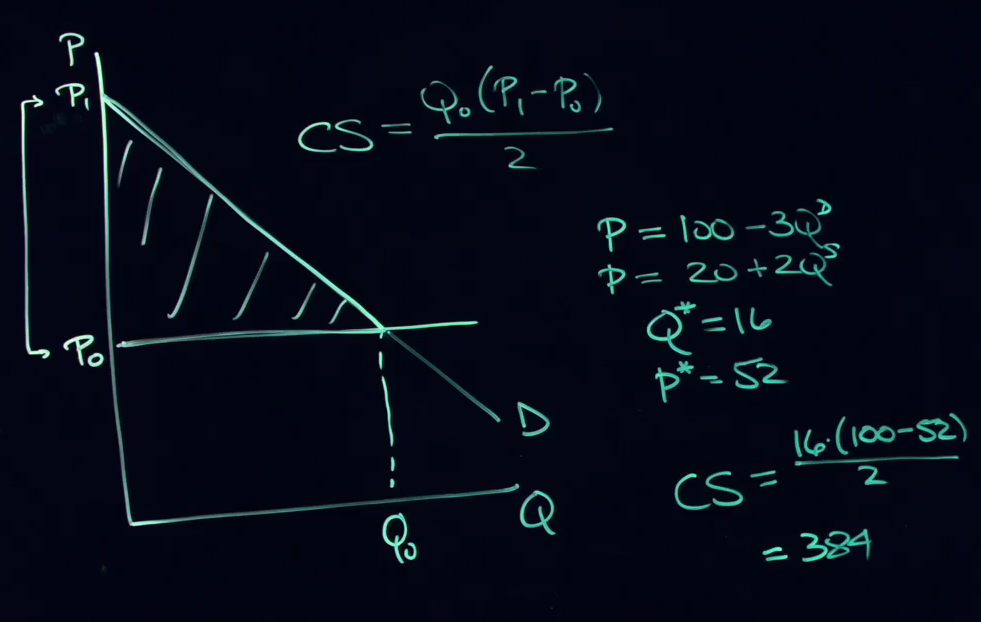 P
P₁
P₀
D
Q
Q₀
CS = Q₀(P₁-P₀) / 2
P = 100 - 3Qᴰ
P = 20 + 2Qˢ
Q* = 16
P* = 52
CS = 16·(100-52) / 2
= 384